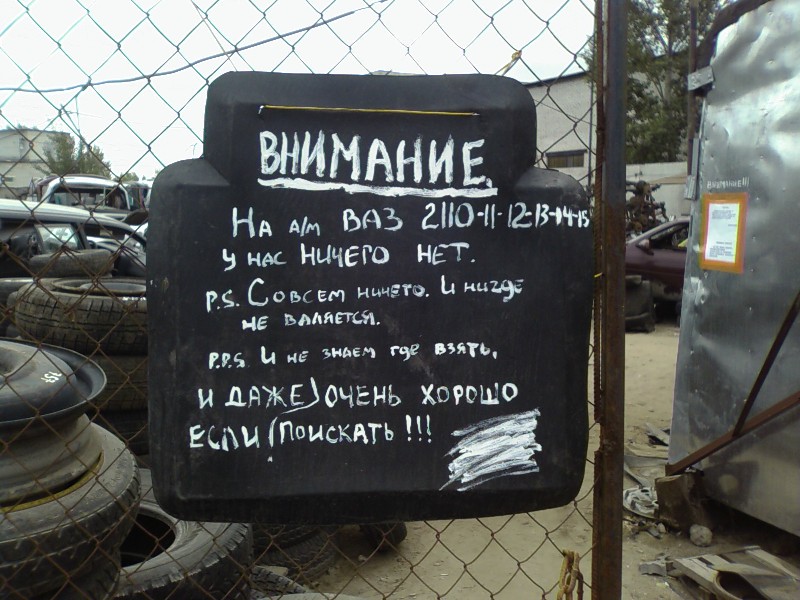 ВНИМАНИЕ.
НА А/М ВАЗ 2110-11-12-13-14-15
У НАС НИЧЕГО НЕТ.
P.S. СОВСЕМ НИЧЕГО. И НИГДЕ
НЕ ВАЛЯЕТСЯ.
P.P.S. И НЕ ЗНАЕМ ГДЕ ВЗЯТЬ,
И ДАЖЕ ОЧЕНЬ ХОРОШО
ЕСЛИ ПОИСКАТЬ!!!
ВНИМАНИЕ!!!